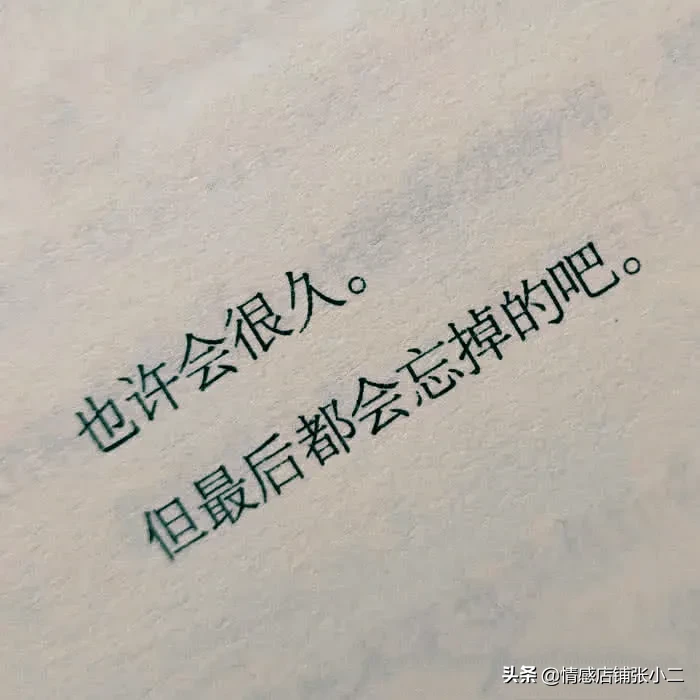 也许会很久。
但最后都会忘掉的吧。
头条 @情感店铺张小二